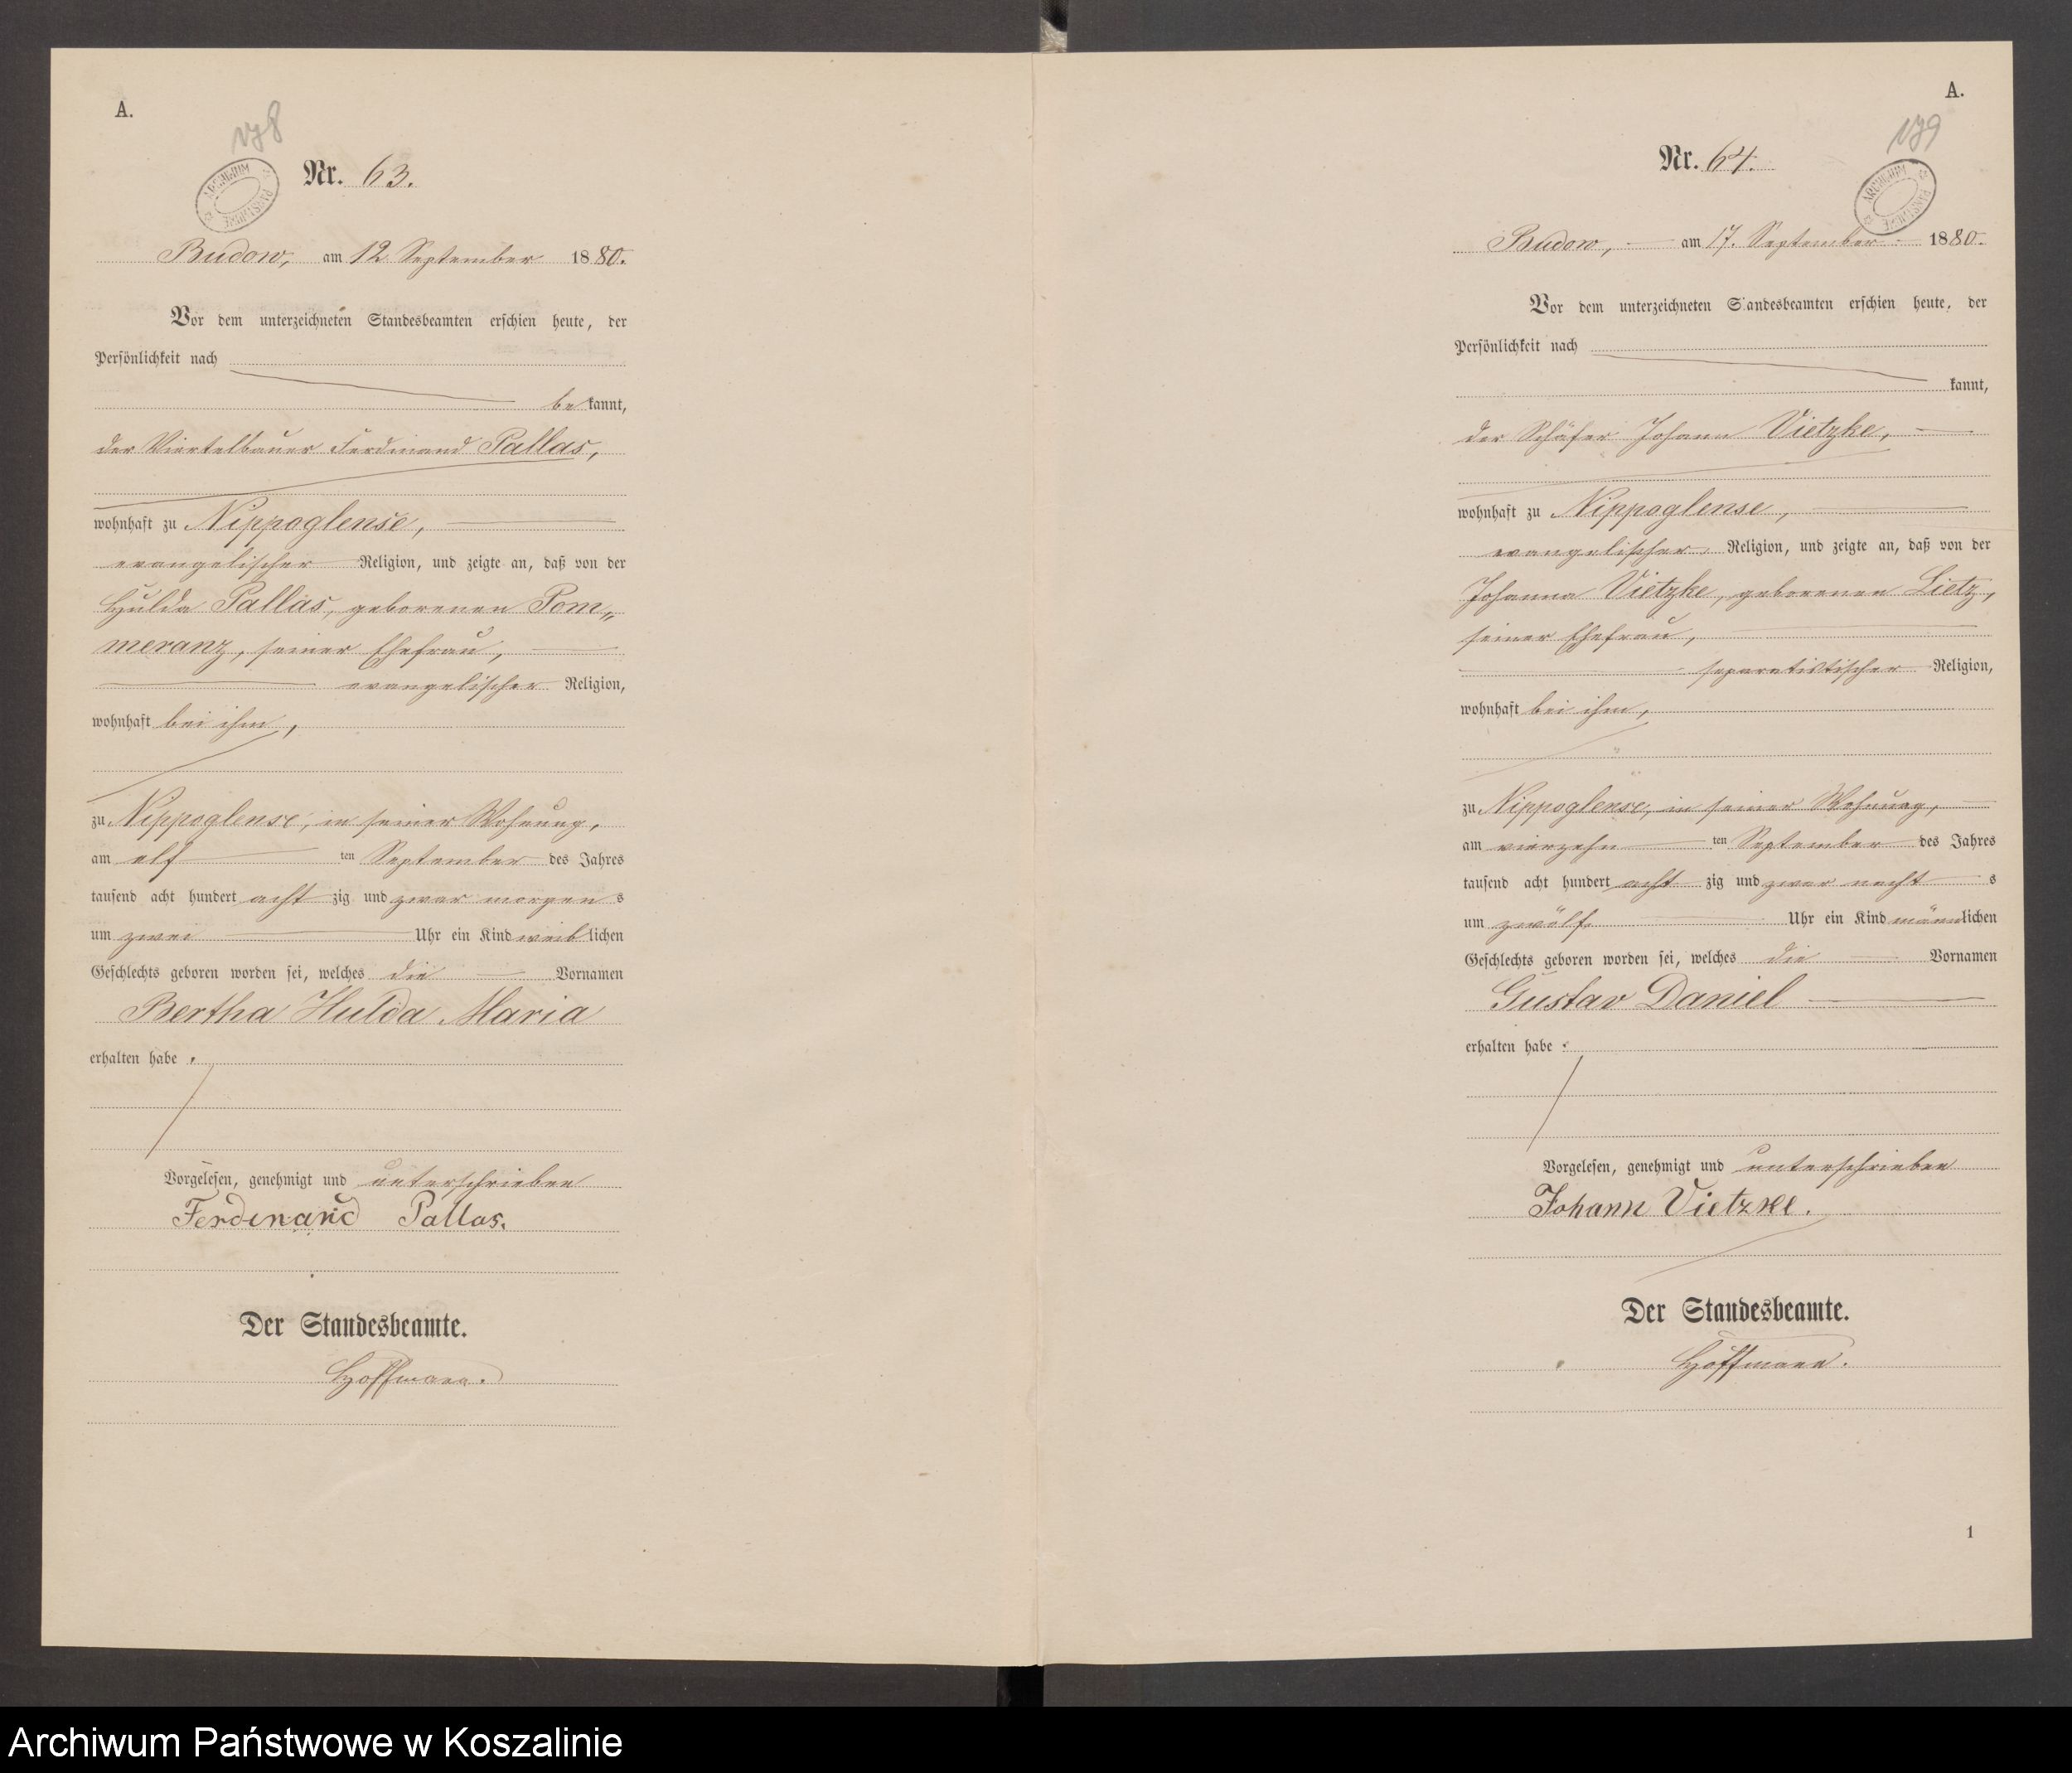 A.
178
Nr. 63.
ARCHIWUM PAŃSTWOWE
Budow, am 12 September 1880.
Vor dem unterzeichneten Standesbeamten erschien heute, der
Persönlichkeit nach
be kannt,
der Viertelbauer Ferdinand Pallas,
wohnhaft zu Nippoglense,
evangelischer Religion, und zeigte an, daß von der
Hulda Pallas, geborenen Pom„
meranz, seiner Ehefrau,
evangelischer Religion,
wohnhaft bei ihm,
zu Nippoglense, in seiner Wohnung,
am elf ten September des Jahres
tausend acht hundert acht zig und zwar morgen s
um zwei Uhr ein Kind weib lichen
Geschlechts geboren worden sei, welches die Vornamen
Bertha Hulda Maria
erhalten habe.
Vorgelesen, genehmigt und unterschrieben
Ferdinand Pallas.
Der Standesbeamte.
Hoffmann.
A.
179
Nr. 64.
ARCHIWUM PAŃSTWOWE
Budow, am 17. September 1880.
Vor dem unterzeichneten Standesbeamten erschien heute, der
Persönlichkeit nach
kannt,
der Schäfer Johann Vietzke,
wohnhaft zu Nippoglense,
evangelischer Religion, und zeigte an, daß von der
Johanna Vietzke, geborenen Lietz,
seiner Ehefrau,
separatistischer Religion,
wohnhaft bei ihm,
zu Nippoglense, in seiner Wohnung,
am vierzehn ten September des Jahres
tausend acht hundert acht zig und zwar nacht s
um zwölf Uhr ein Kind männlichen
Geschlechts geboren worden sei, welches die Vornamen
Gustav Daniel
erhalten habe.
Vorgelesen, genehmigt und unterschrieben
Johann Vietzke.
Der Standesbeamte.
Hoffmann.
1
Archiwum Państwowe w Koszalinie